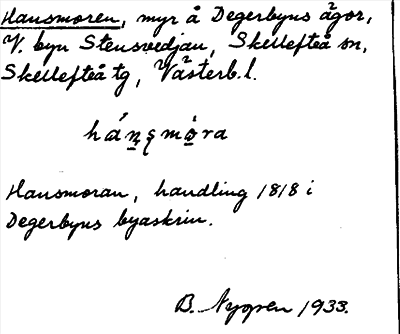 Hansmoren, myr å Degerbyns ägor,
V. byn Stensvedjan, Skellefteå sn,
Skellefteå tg, Västerb. l.
hánsmo̱ra
Hansmoran, handling 1818 i
Degerbyns byaskrin.
B. Nygren 1933.